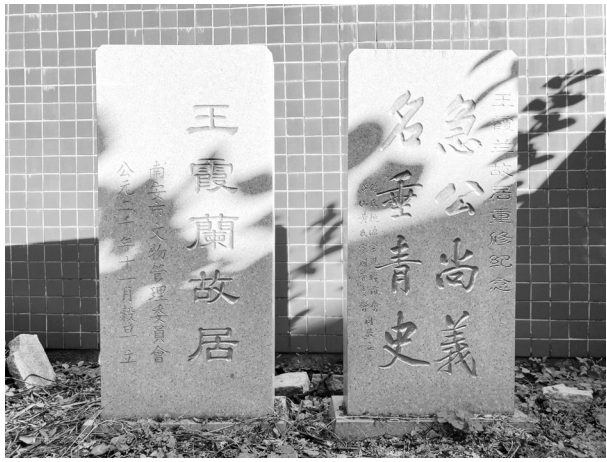 王霞蘭故居
南安市文物管理委員會
公元二千年十一月穀旦立
王霞蘭故居重修紀念
急公尚義
名垂青史